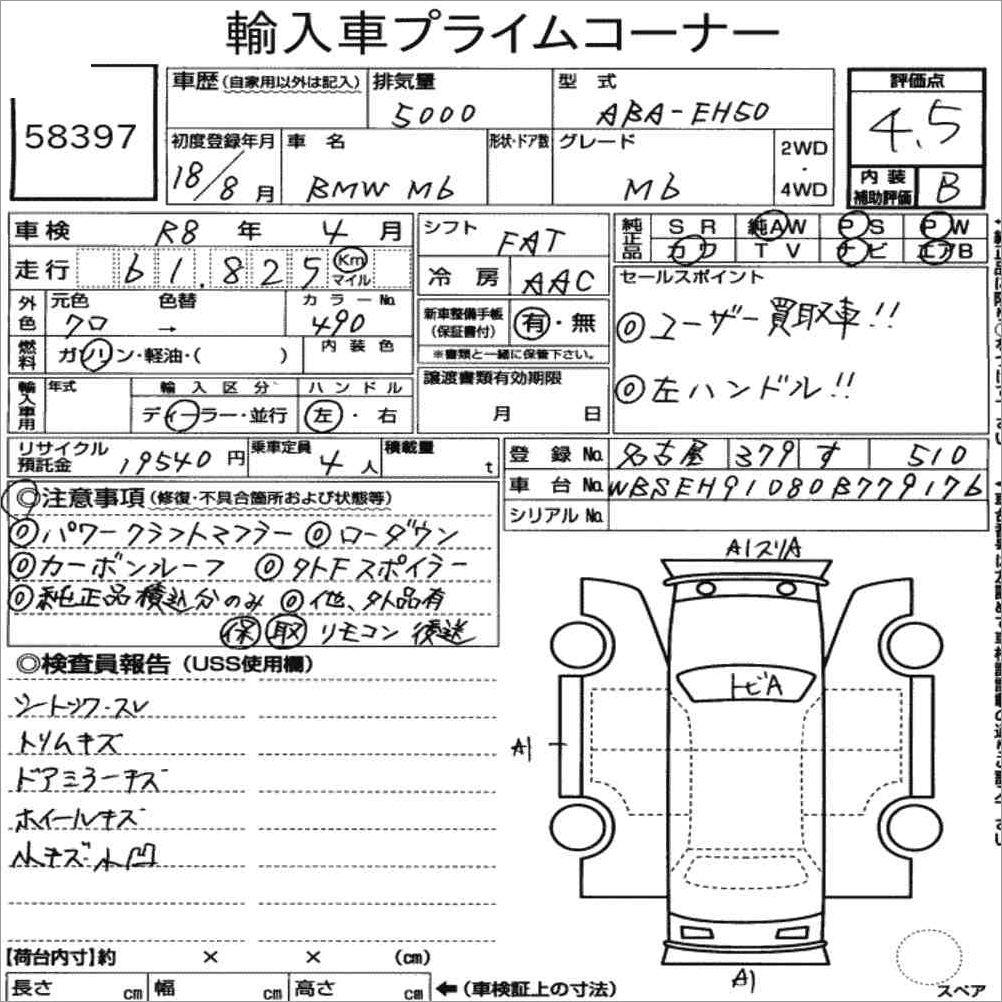 輸入車プライムコーナー
58397
車歴(自家用以外は記入) 排気量 5000 型 式 ABA-EH50 評価点 4.5
初度登録年月 18/8月 車 名 BMW M6 形状・ドア数 グレード M6 2WD・4WD 内装補助評価 B
車検 R8 年 4 月 シフト FAT 純正品 SR 純AW PS PW
走行 61,825 Km マイル 冷房 AAC カワ TV ナビ エアB
外色 元色 クロ 色替 → カラーNo. 490 新車整備手帳(保証書付) 有・無 セールスポイント
◎ユーザー買取車!!
◎左ハンドル!!
燃料 ガソリン・軽油・( ) 内装色 ※書類と一緒に保管下さい。
輸入車用 年式 輸入区分 ディーラー・並行 ハンドル 左・右 譲渡書類有効期限 月 日
リサイクル預託金 19540円 乗車定員 4人 積載量 t 登録No. 名古屋 379 す 510
車台No. WBSEH91080B779176
シリアルNo.
◎注意事項(修復・不具合箇所および状態等)
◎パワークラフトマフラー ◎ローダウン
◎カーボンルーフ ◎タトFスポイラー
◎純正品積込分のみ ◎他、外品有
保 取 リモコン 後送
◎検査員報告(USS使用欄)
シートシワ・スレ
トリムキズ
ドアミラーキズ
ホイールキズ
小キズ小凹
A1スリA
トビA
A1
A1
【荷台内寸】約 × × (cm)
長さ cm 幅 cm 高さ cm ←(車検証上の寸法)
スペア